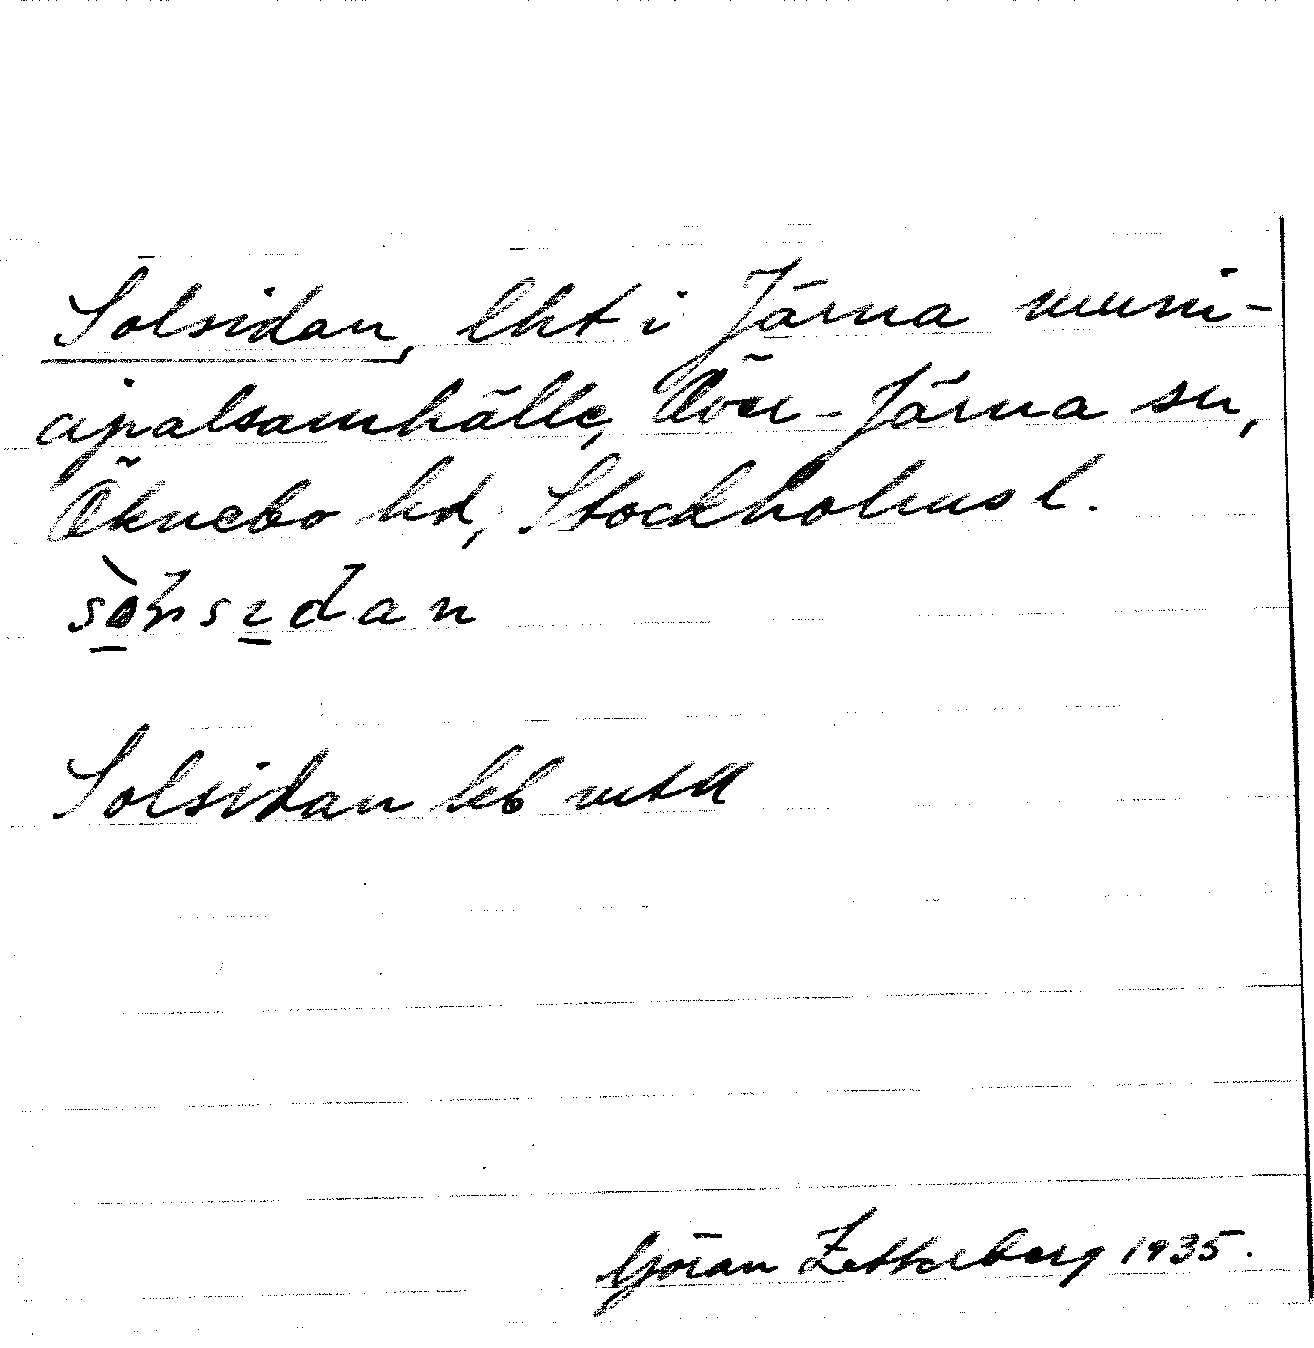 Solsidan, lht i Järna muni-
cipalsamhälle, Över-Järna sn,
Öknebo hd, Stockholms l.
Solsidan jeb mtll
Göran Zetterberg 1935.